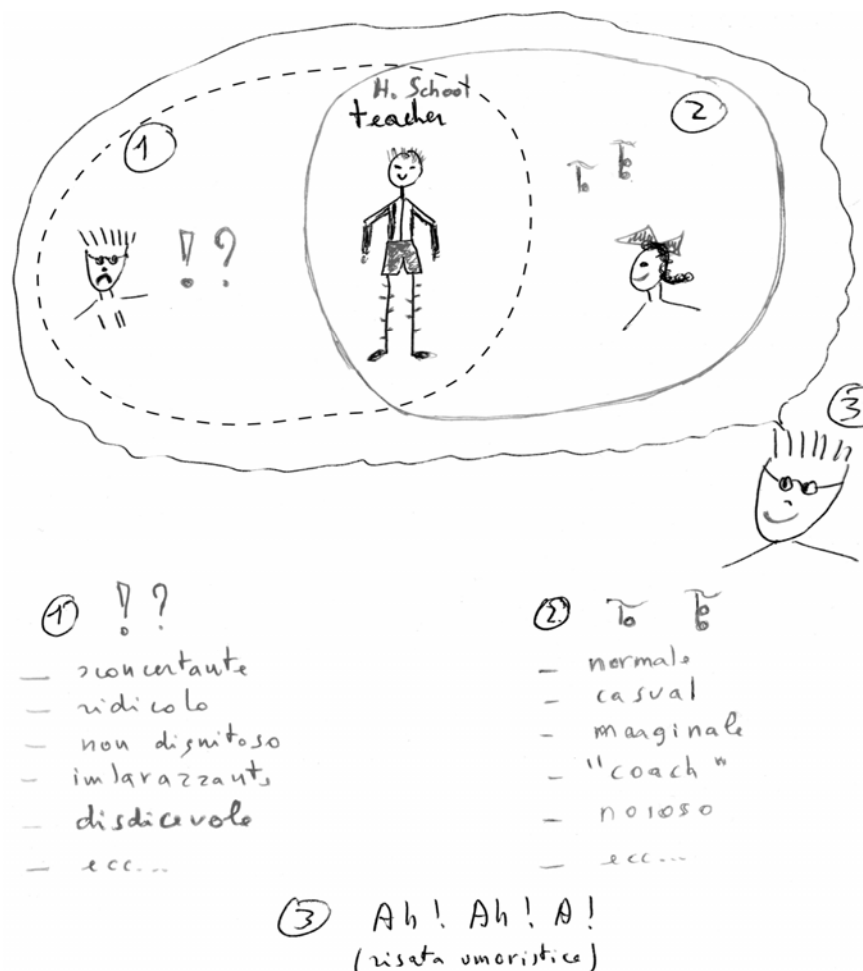 H. School
teacher
1
2
! ?
3
1 ! ?
— sconcertante
— ridicolo
— non dignitoso
— imbarazzante
— disdicevole
— ecc...
2
— normale
— casual
— marginale
— "coach"
— noioso
— ecc...
3 Ah! Ah! A!
(risata umoristica)